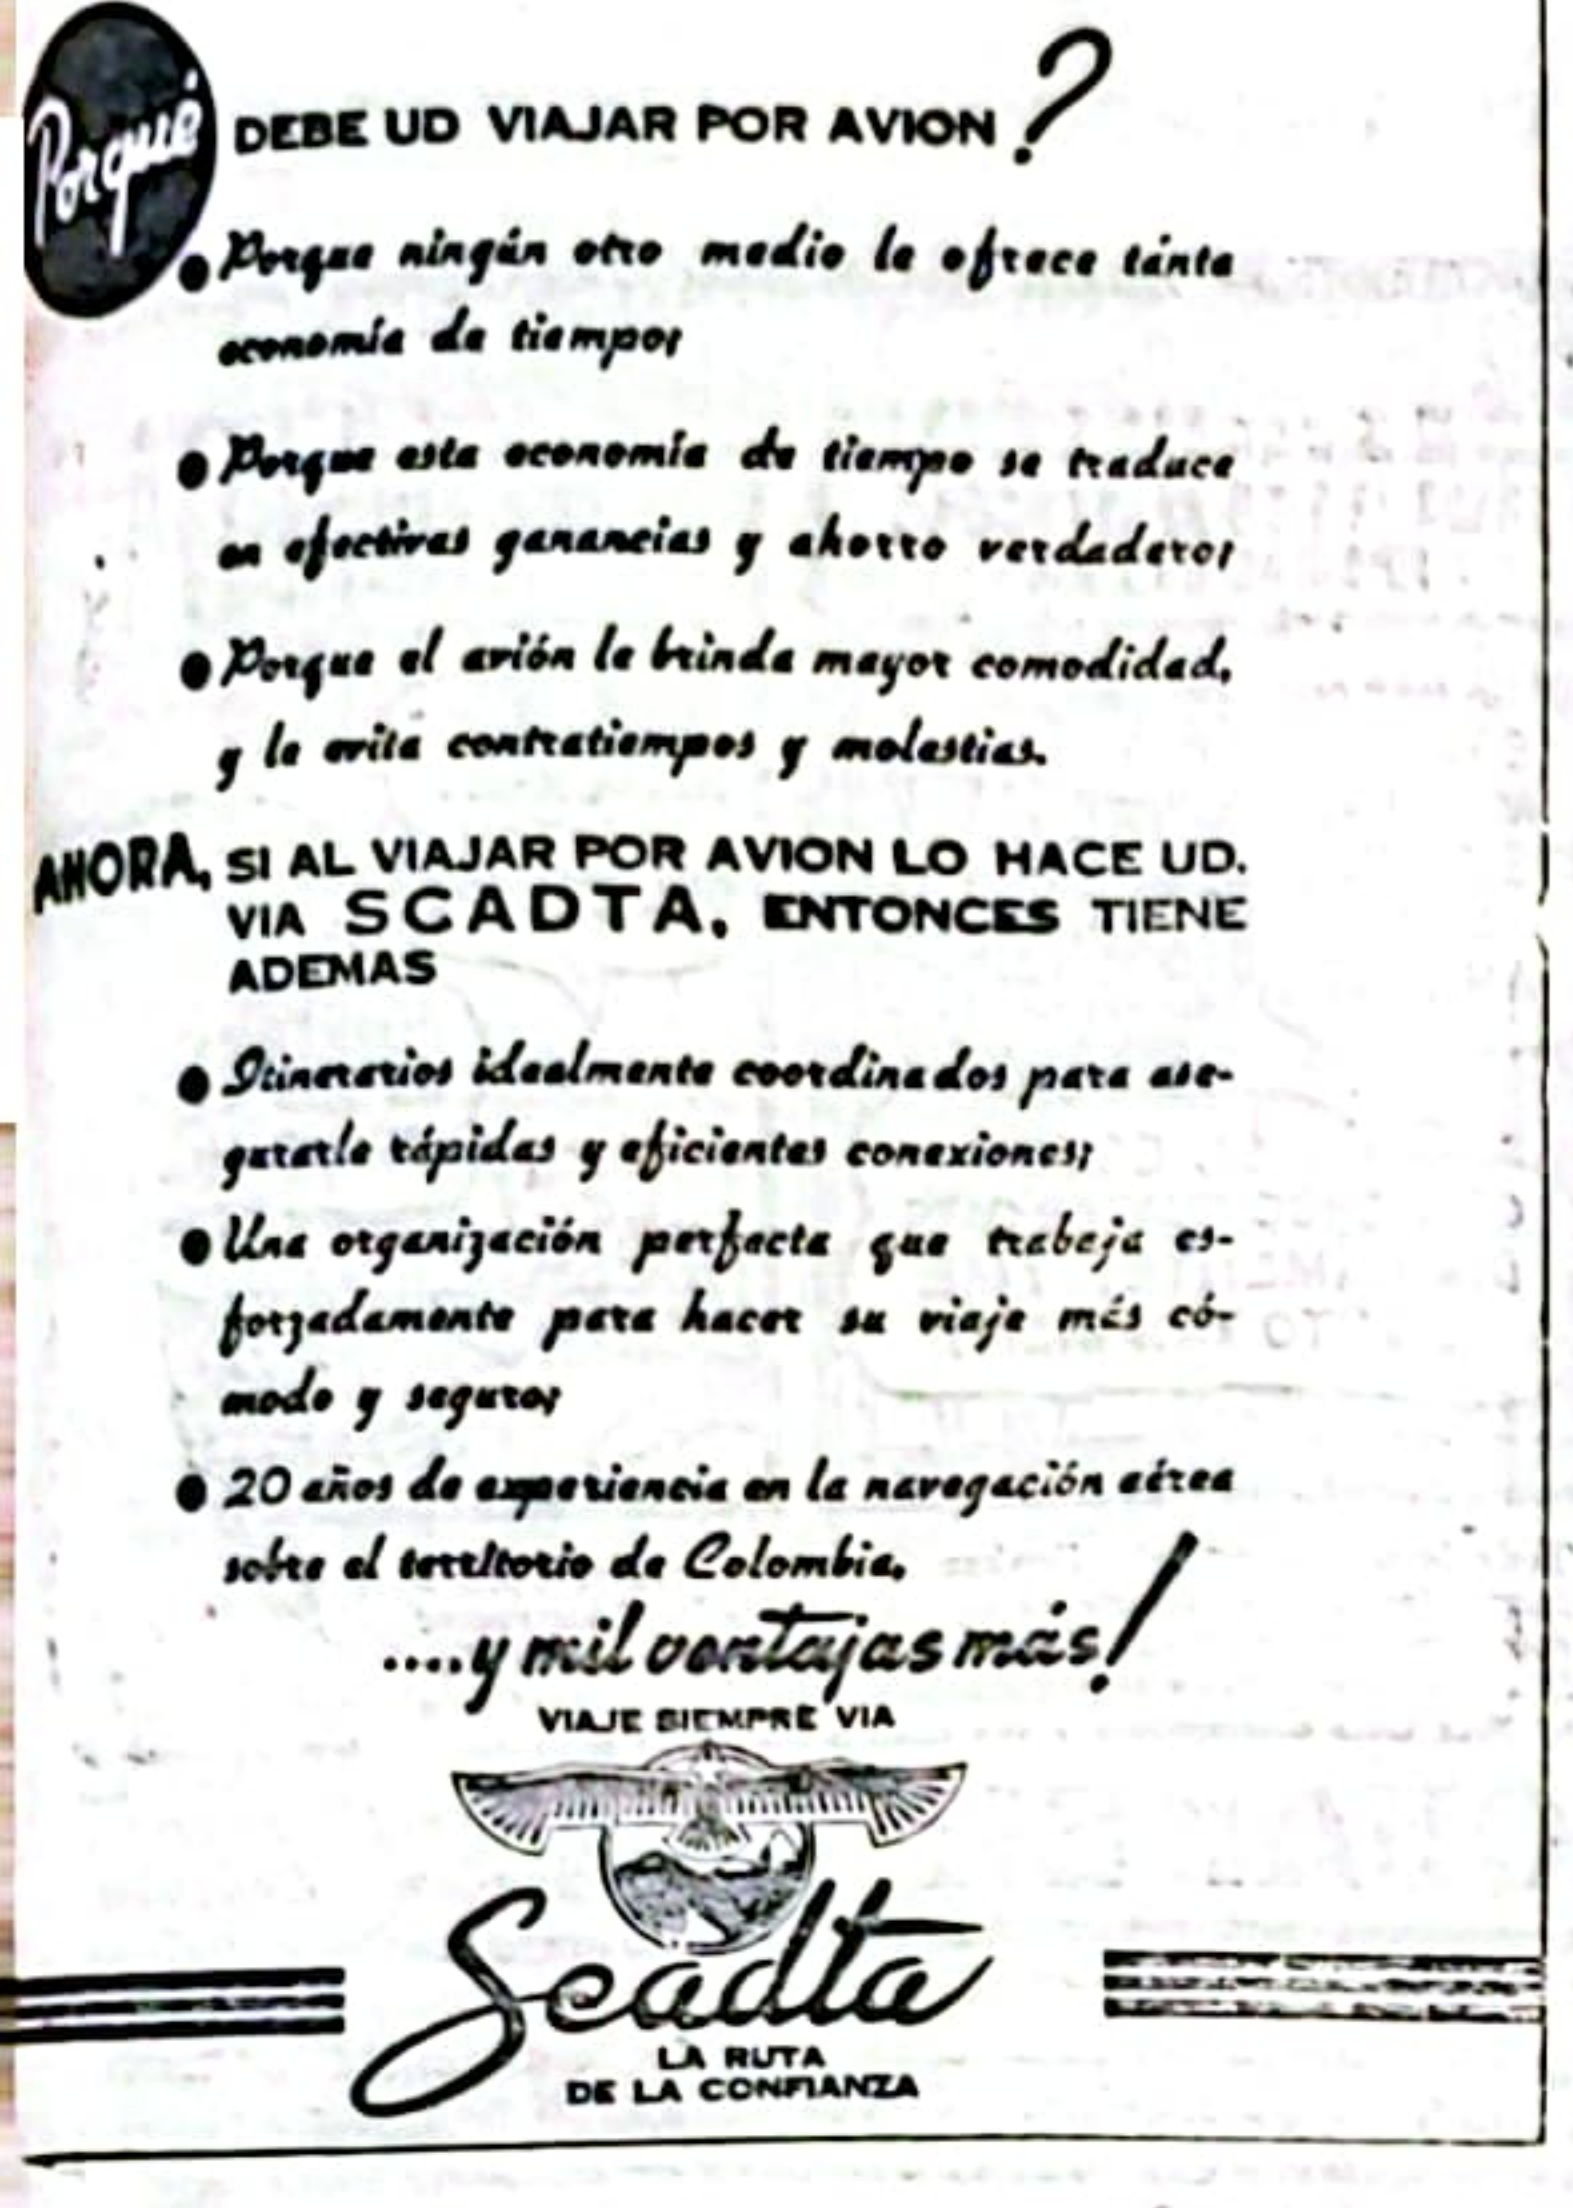 Porqué DEBE UD VIAJAR POR AVION?
● Porque ningún otro medio le ofrece tánta
economía de tiempo;
● Porque esta economía de tiempo se traduce
en efectivas ganancias y ahorro verdadero;
● Porque el avión le brinda mayor comodidad,
y le evita contratiempos y molestias.
AHORA, SI AL VIAJAR POR AVION LO HACE UD.
VIA SCADTA, ENTONCES TIENE
ADEMAS
● Itinerarios idealmente coordinados para ase-
gurarle rápidas y eficientes conexiones;
● Una organización perfecta que trabaja es-
forzadamente para hacer su viaje más có-
modo y seguro;
● 20 años de experiencia en la navegación aérea
sobre el territorio de Colombia.
....y mil ventajas más!
VIAJE SIEMPRE VIA
Scadta
LA RUTA
DE LA CONFIANZA